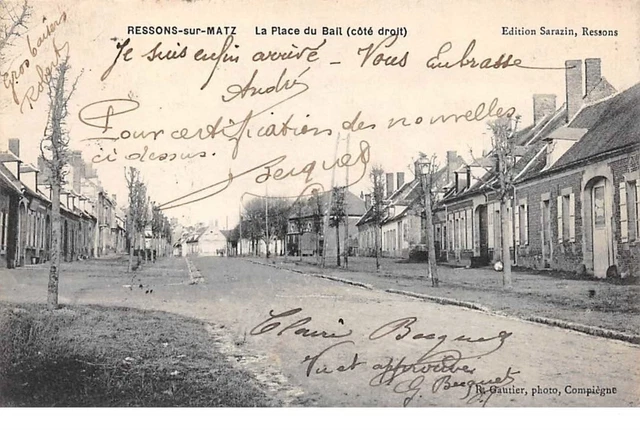 RESSONS-sur-MATZ La Place du Bail (côté droit)
Edition Sarazin, Ressons
Je suis enfin arrivé - Vous Embrasse
André
Gros baisers
Robert
Pour certification des nouvelles
ci dessus.
Becquet
Claire Becquet
Vu et approuver
G. Becquet
R. Gautier, photo, Compiègne